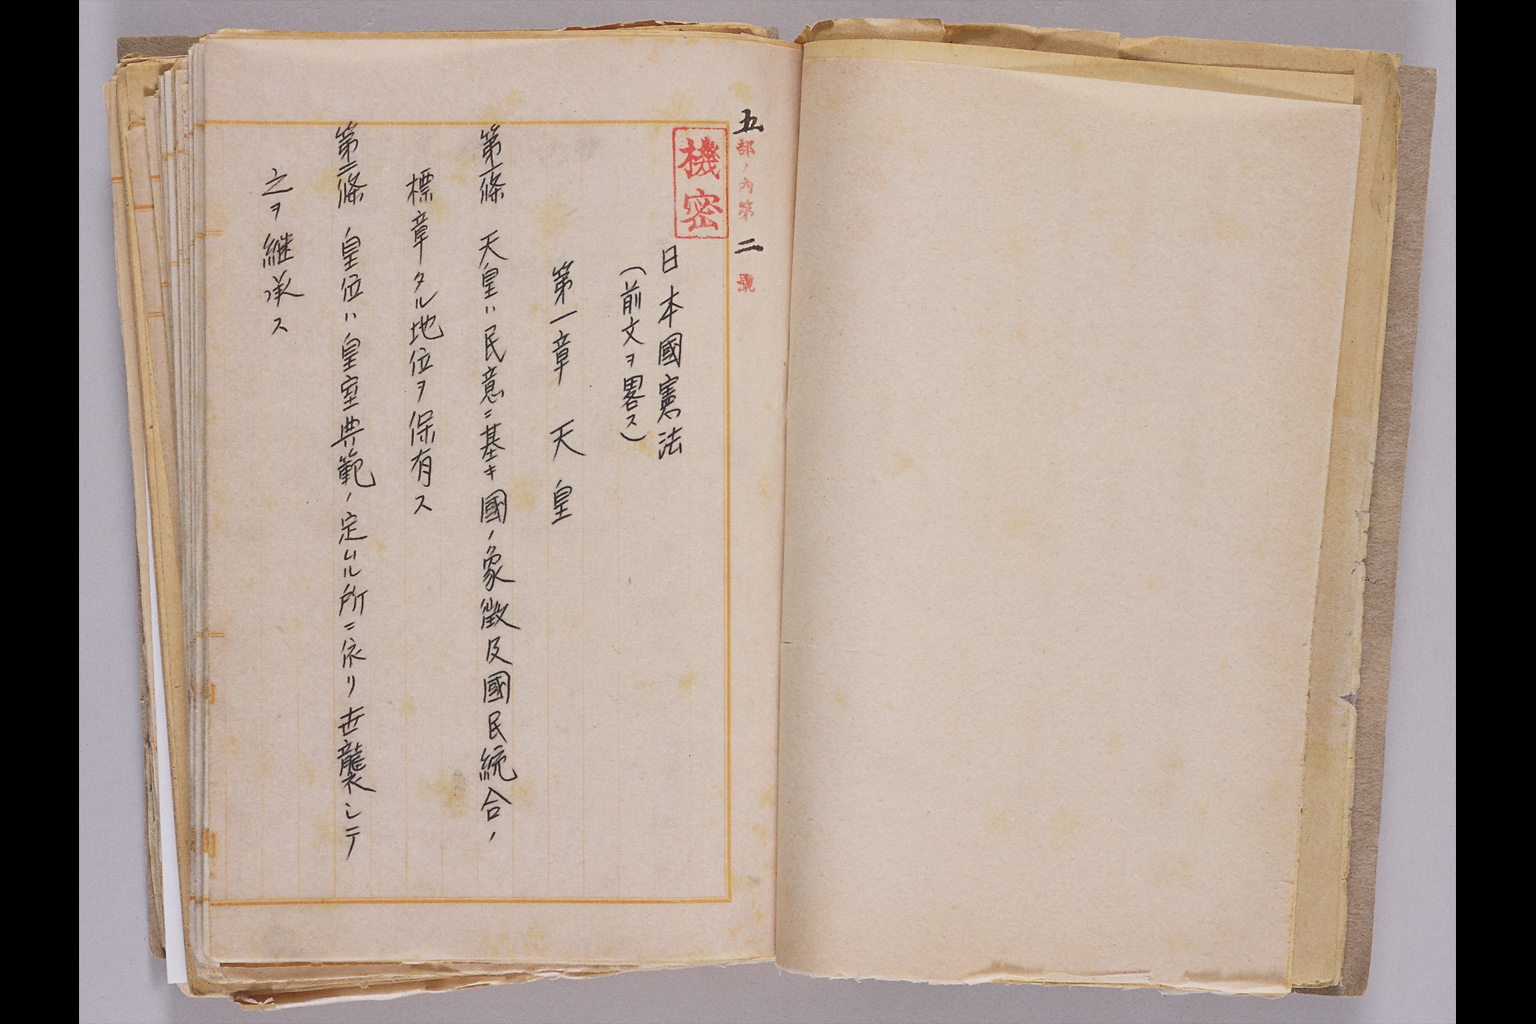 五部ノ內第二號
機密
日本國憲法
(前文ヲ畧ス)
第一章 天皇
第一條 天皇ハ民意ニ基キ國ノ象徴及國民統合ノ
標章タル地位ヲ保有ス
第二條 皇位ハ皇室典範ノ定ムル所ニ依リ世襲シテ
之ヲ継承ス